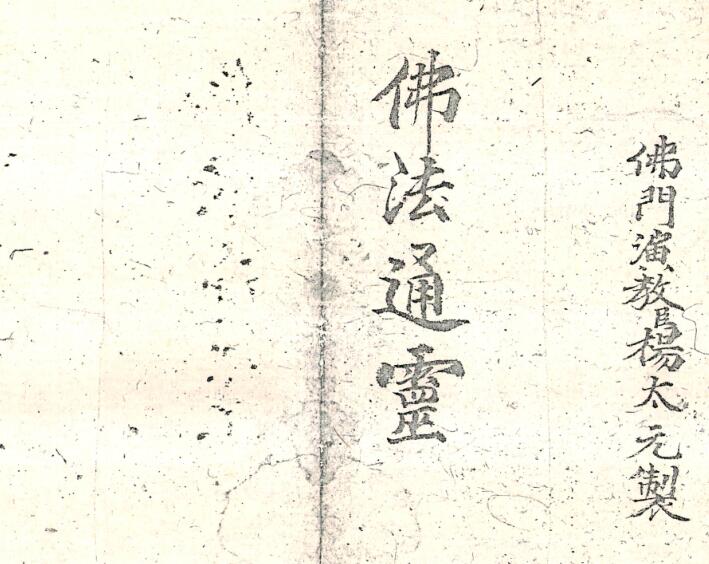 佛門演教官楊太元製
佛法通靈